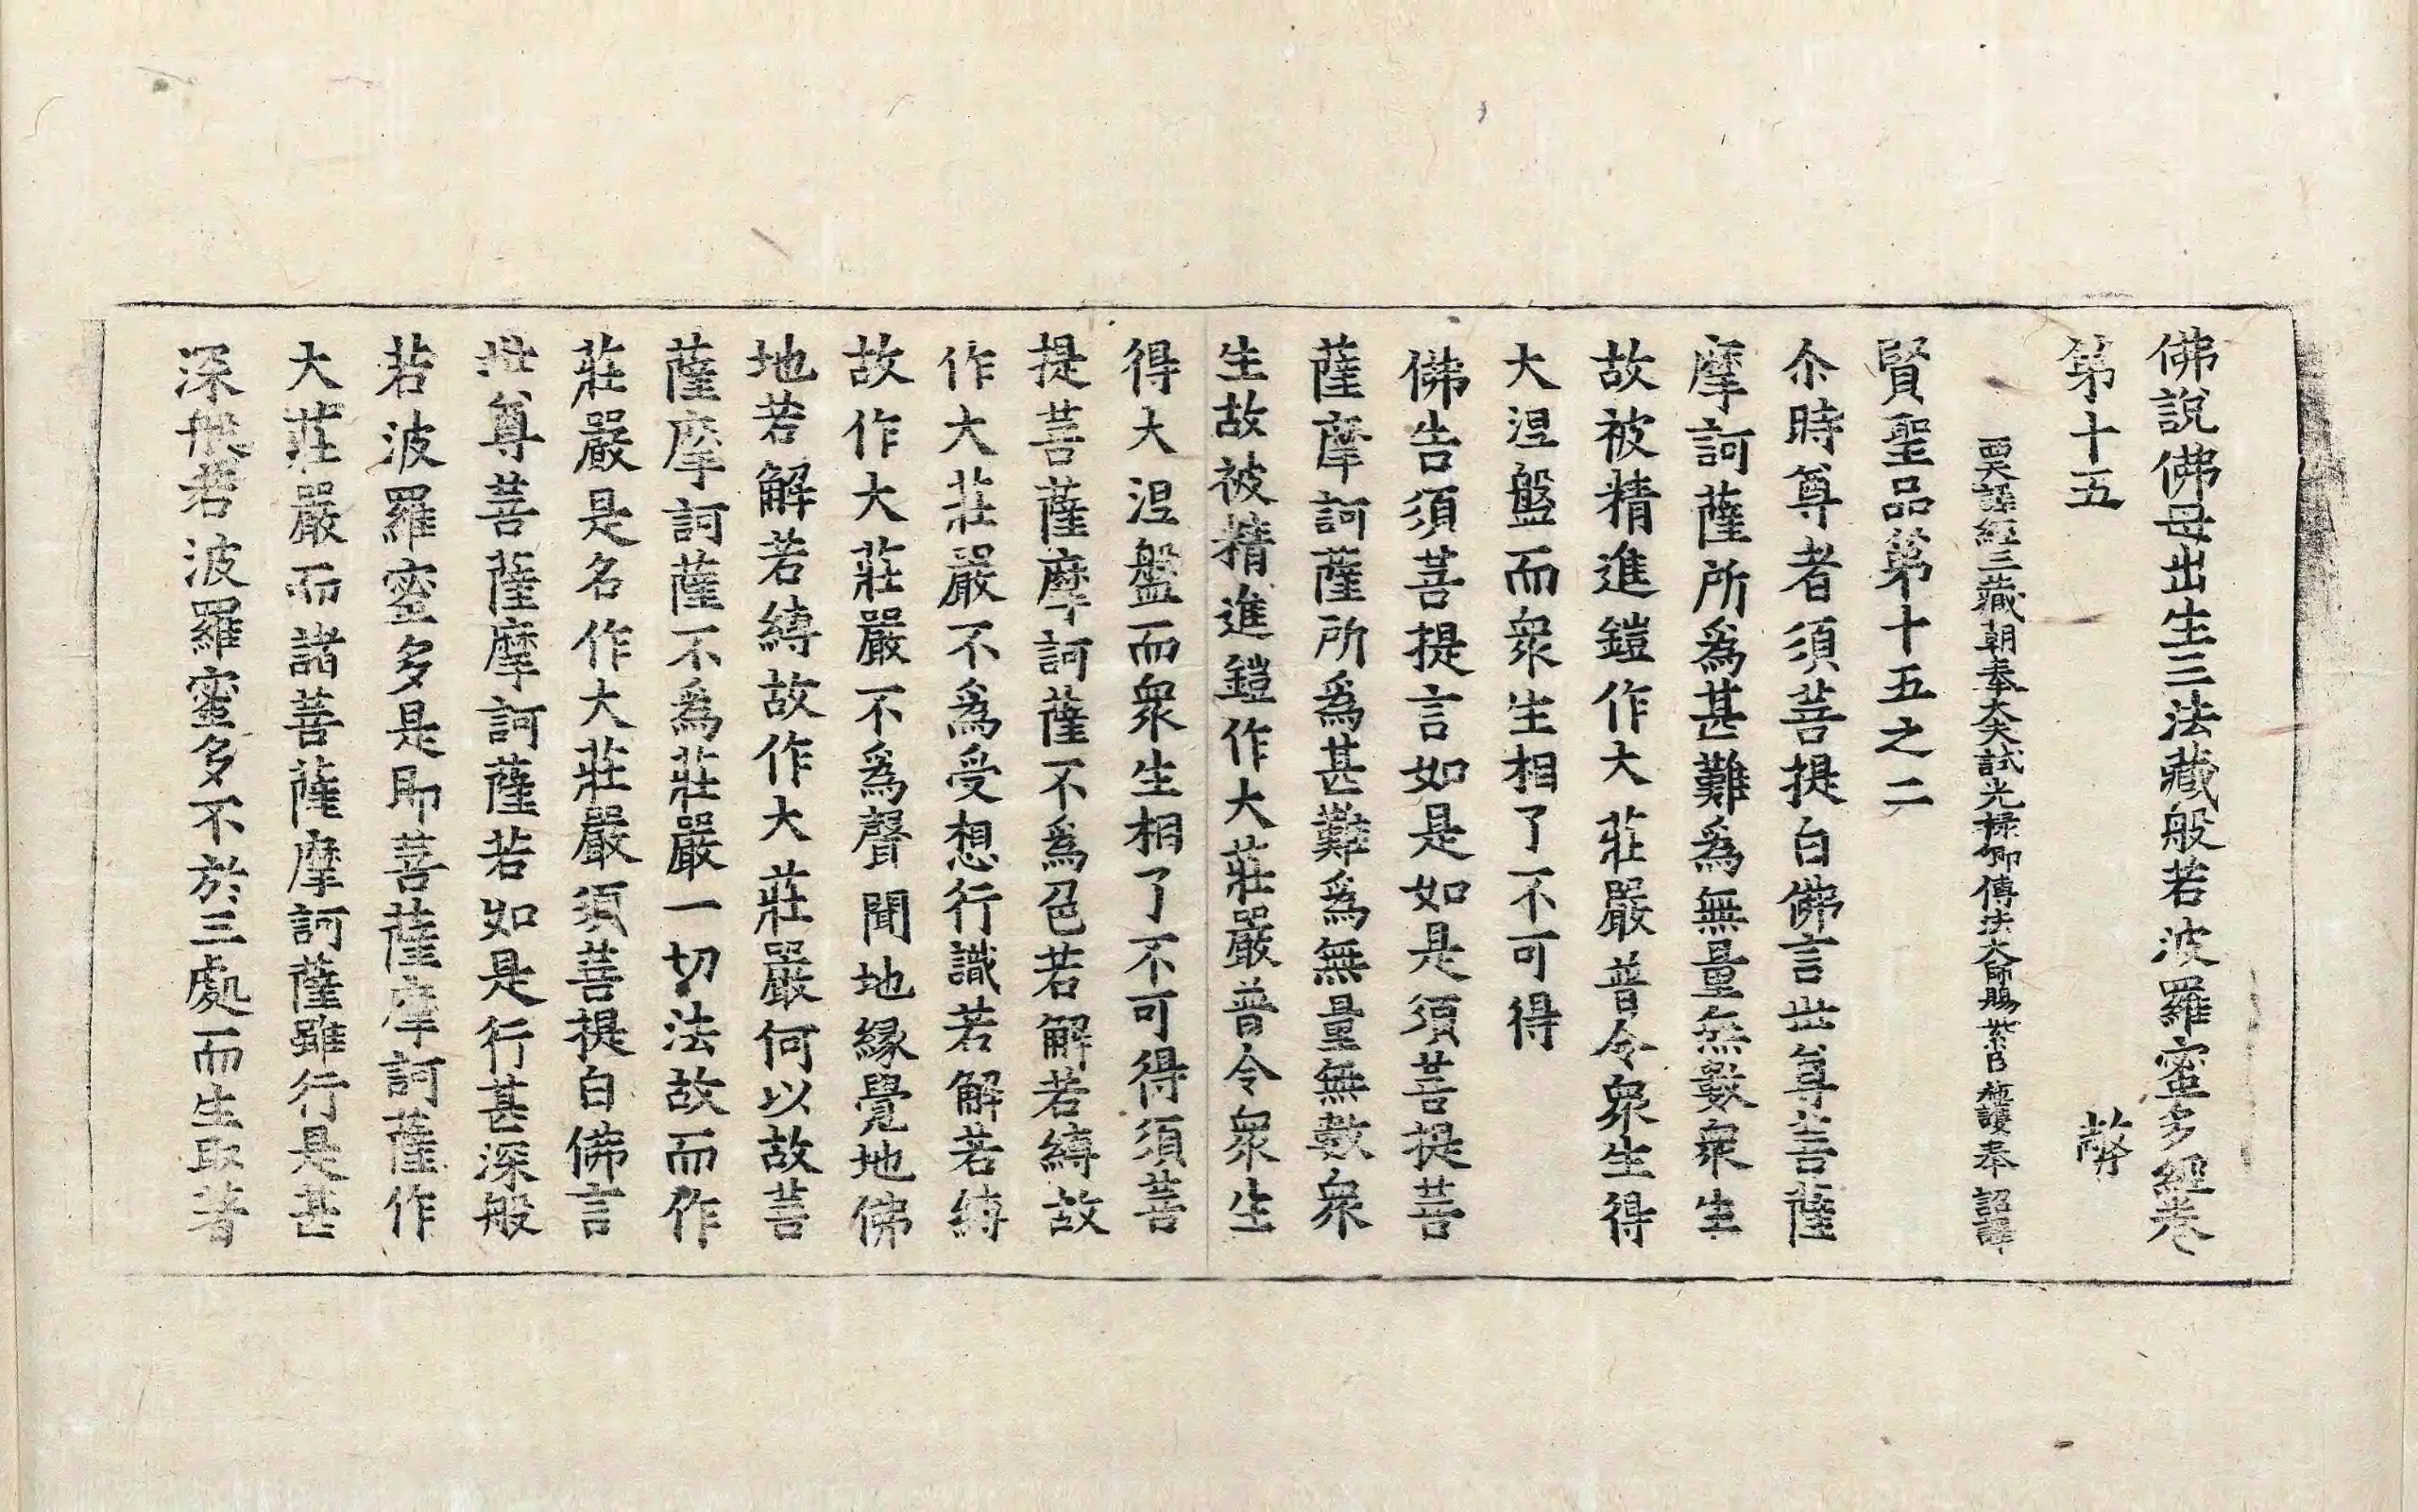 佛說佛母出生三法藏般若波羅蜜多經卷
第十五 弊
西天譯經三藏朝奉大夫試光祿卿傳法大師賜紫臣施護奉 詔譯
賢聖品第十五之二
尒時尊者須菩提白佛言世尊菩薩
摩訶薩所為甚難為無量無數衆生
故被精進鎧作大莊嚴普令衆生得
大涅盤而衆生相了不可得
佛告須菩提言如是如是須菩提菩
薩摩訶薩所為甚難為無量無數衆
生故被精進鎧作大莊嚴普令衆生
得大涅盤而衆生相了不可得須菩
提菩薩摩訶薩不為色若解若縛故
作大莊嚴不為受想行識若解若縛
故作大莊嚴不為聲聞地緣覺地佛
地若解若縛故作大莊嚴何以故菩
薩摩訶薩不為莊嚴一切法故而作
莊嚴是名作大莊嚴須菩提白佛言
世尊菩薩摩訶薩若如是行甚深般
若波羅蜜多是即菩薩摩訶薩作
大莊嚴而諸菩薩摩訶薩雖行是甚
深般若波羅蜜多不於三處而生取著